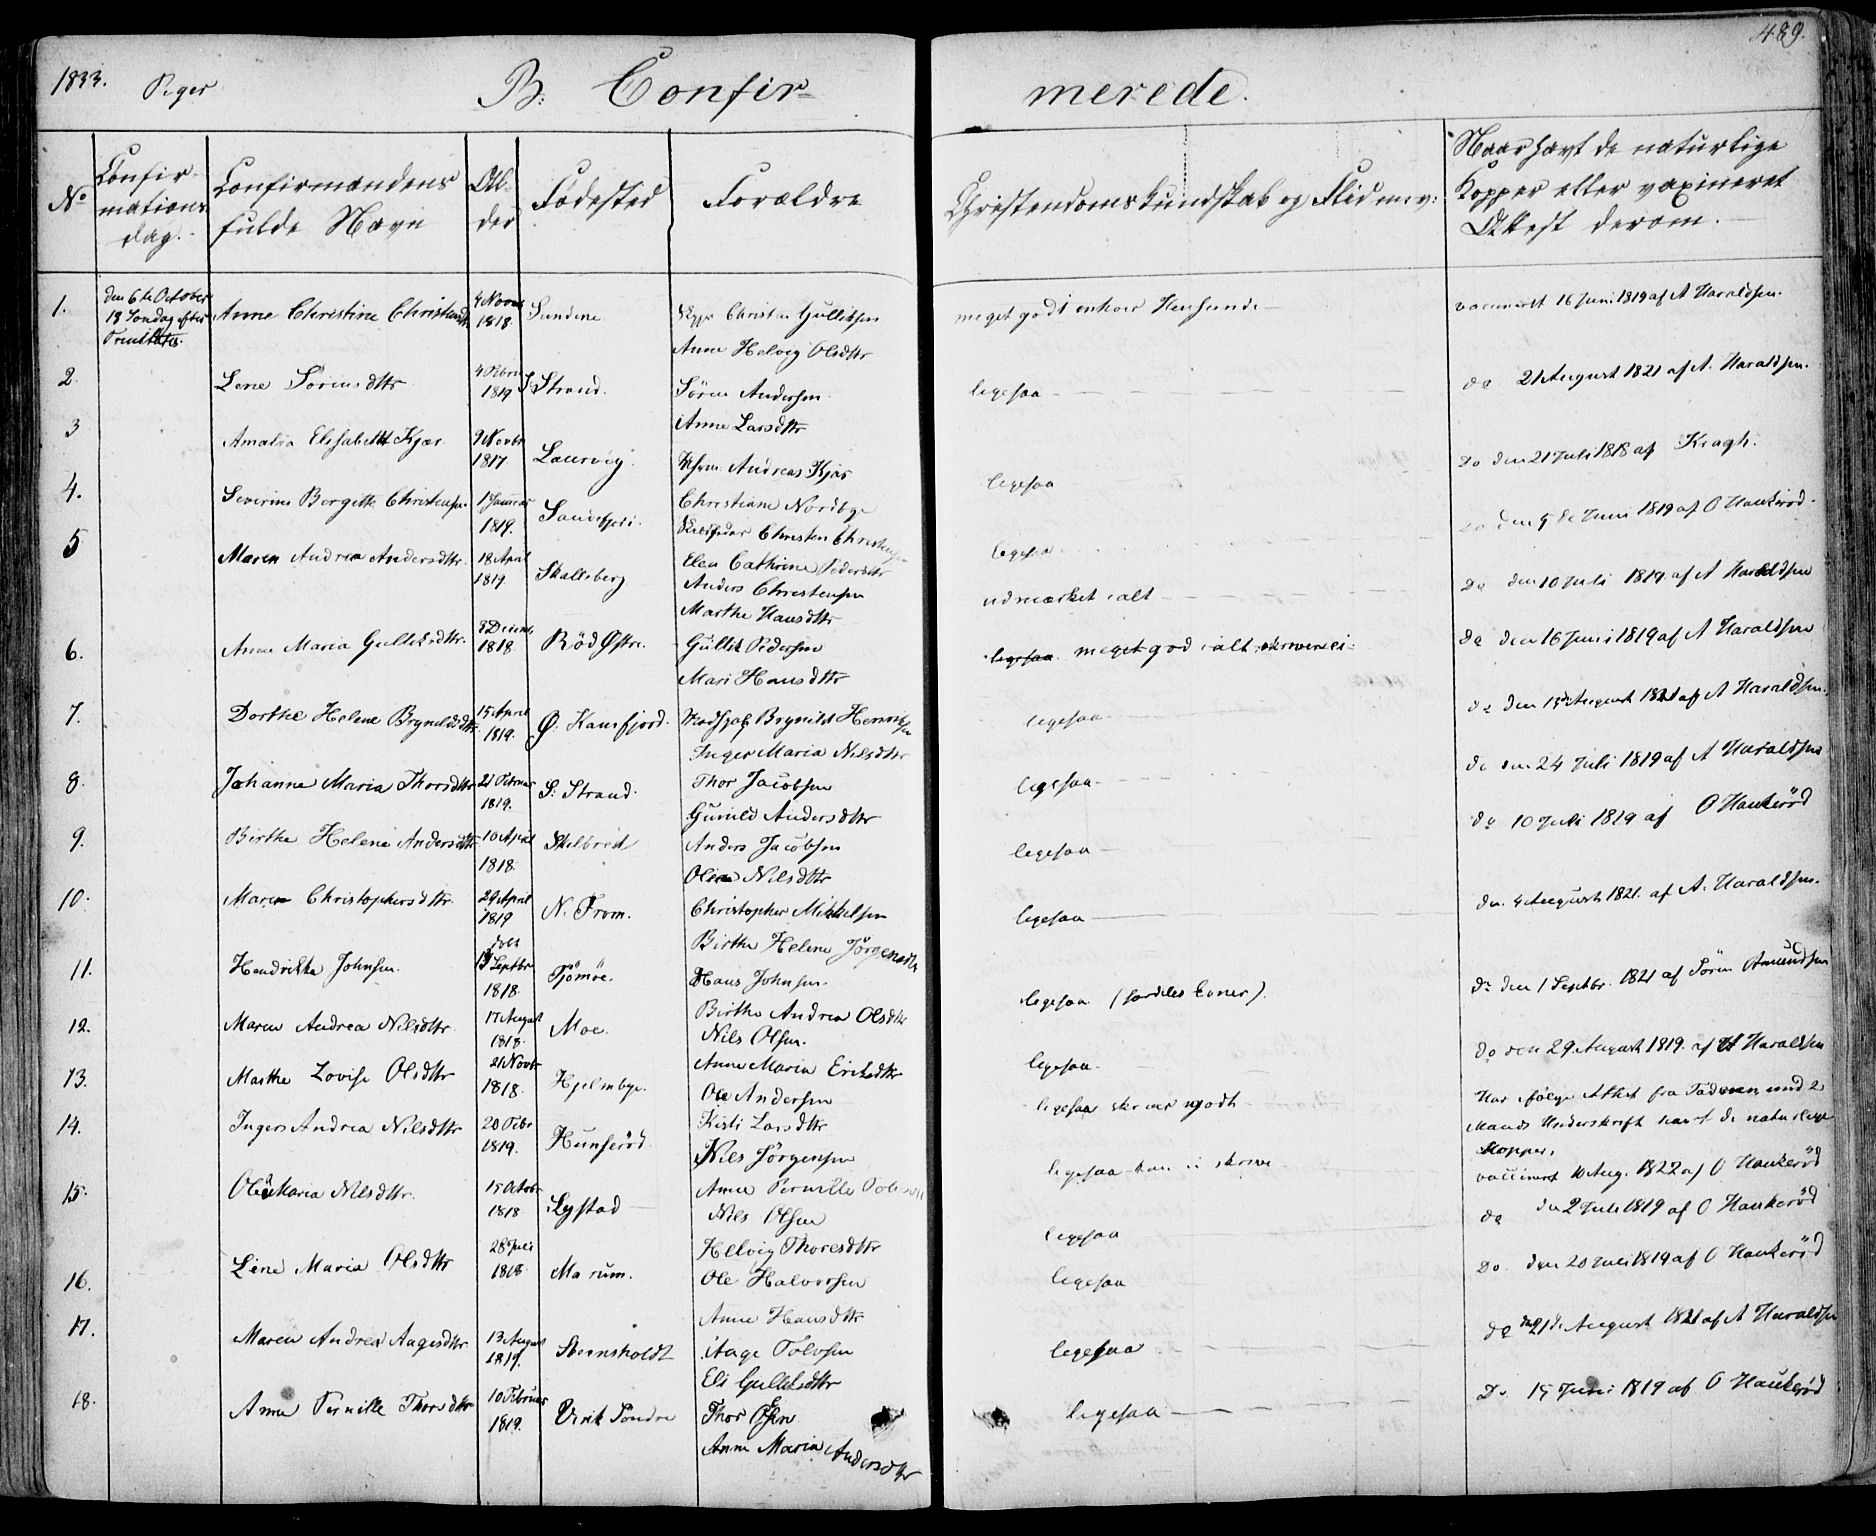 1833. Piger B. Confir-
merede. 489.
No
Confir-
mations
dag.
Confirmandens
fulde Navn
Al-
der
Fødested
Forældre
Christendomskundskab og Flid m. v.
Naar havt de naturlige
Kopper eller vaxineret
Attest derom.
1. den 6te October 18 Søndag efter Trinitatis. Anne Christine 4 Novbr 1818. Sundene Christen Gulliksen
Anne Helvig Olsdttr
meget god vaccineret 16 Juni 1819 af A Haraldsen.
2. Lene Sörensdttr 1819 S. Strand. Sören Andersen
Anne Larsdttr
legesaa do 21 August 1821 af A. Haraldsen.
3 Amalia Elisabeth Kjær 9 Novbr 1817 Laurvig. Andreas Kjær
Christiane Nordbye
legesaa Do den 21 Juli 1818 af Kragh.
4. Severine Borgitte Christensen 1 Januar 1819. Christen Christensen
Elen Cathrine Pedersdttr
legesaa den 5 Juni 1819 af O Haukeröd.
5 Maren Andrea Andersdttr. 18 April 1819 Skallsberg Anders Christensen
Marthe Hansdttr
udmærket i alt Do den 10 Juli 1819 af A Haraldsen
6. Anne Maria Gulliksdttr. 1818. Röd Østre Gullik Pedersen
Mari Hansdttr
legesaa meget god i alt skriver ei do den 16 Juni 1819 af A Haraldsen
7. Dorthe Helene Brynildsdttr 15 April 1819. Ø. Kausfjord. Brynild
Inger Maria Nilsdttr
legesaa do den August 1821 af A Haraldsen.
8. Johanne Maria Thorsdttr 21 Februar 1819. S. Strand. Thor Jacobsen
Gunild Andersdttr
legesaa do den 24 Juli 1819 af A Haraldsen
9. Birthe Helene Andersdttr 10 April 1818. Skilbred Anders Jacobsen
Olea Nilsdttr
legesaa do 10 Juli 1819 af O Haukeröd
10. Maren Christophersdttr. 29 April 1819 N. From. Christopher Mikkelsen
Birthe Helene Jörgensdttr
legesaa do. 4 August 1821. af A. Haraldsen.
11. Hendrikke Johnsen. Septbr 1818. Tjömöe. Hans Johnsen
Birthe Andrea Olsdttr
legesaa do den 1 Septbr. 1821 af Sören Amundsen
12. Maren Andrea Nilsdttr 17 August 1818. Moe. Nils Olsen.
Anne Maria Eriksdttr
legesaa do den 29 August 1819. af A Haraldsen
13. Marthe Lovise Olsdttr 21 Novbr 1818. Hjelmbye. Ole Andersen
Kisti Larsdttr
legesaa skriver godt Har ifølge Attest fra Faderen med 2
Mands Underskrift havt de naturlige
Kopper.
14. Inger Andrea Nilsdttr 20 Febr 1819. Hunseröd. Nils Jörgensen
Anne Pernille
legesaa kan ei skrive vaccineret 10 Aug. 1822 af O Haukeröd
15. Olea Maria Nilsdttr. 15 Octobr 1818 Lystad Nils Olsen
Helvig Thoresdttr
legesaa do den 2 Juli 1819 af O Haukeröd
16. Lene Maria Olsdttr 28 Juli 1818. Marum. Ole Halvorsen
Anne Hansdttr
legesaa Do. den 20 Juli 1819 af O Haukeröd
17. Maren Andrea Aagesdttr 13 August 1819. Steensholdt Aage Tolvsen
Eli Gulliksdttr
legesaa do 21de August 1821 af A Haraldsen
18. Anne Pernille Thorsdttr 10 Februar 1819. Virik Söndre Thor Olsen
Anne Maria Andersdttr
legesaa Do. 15 Juni 1819 af O Haukeröd